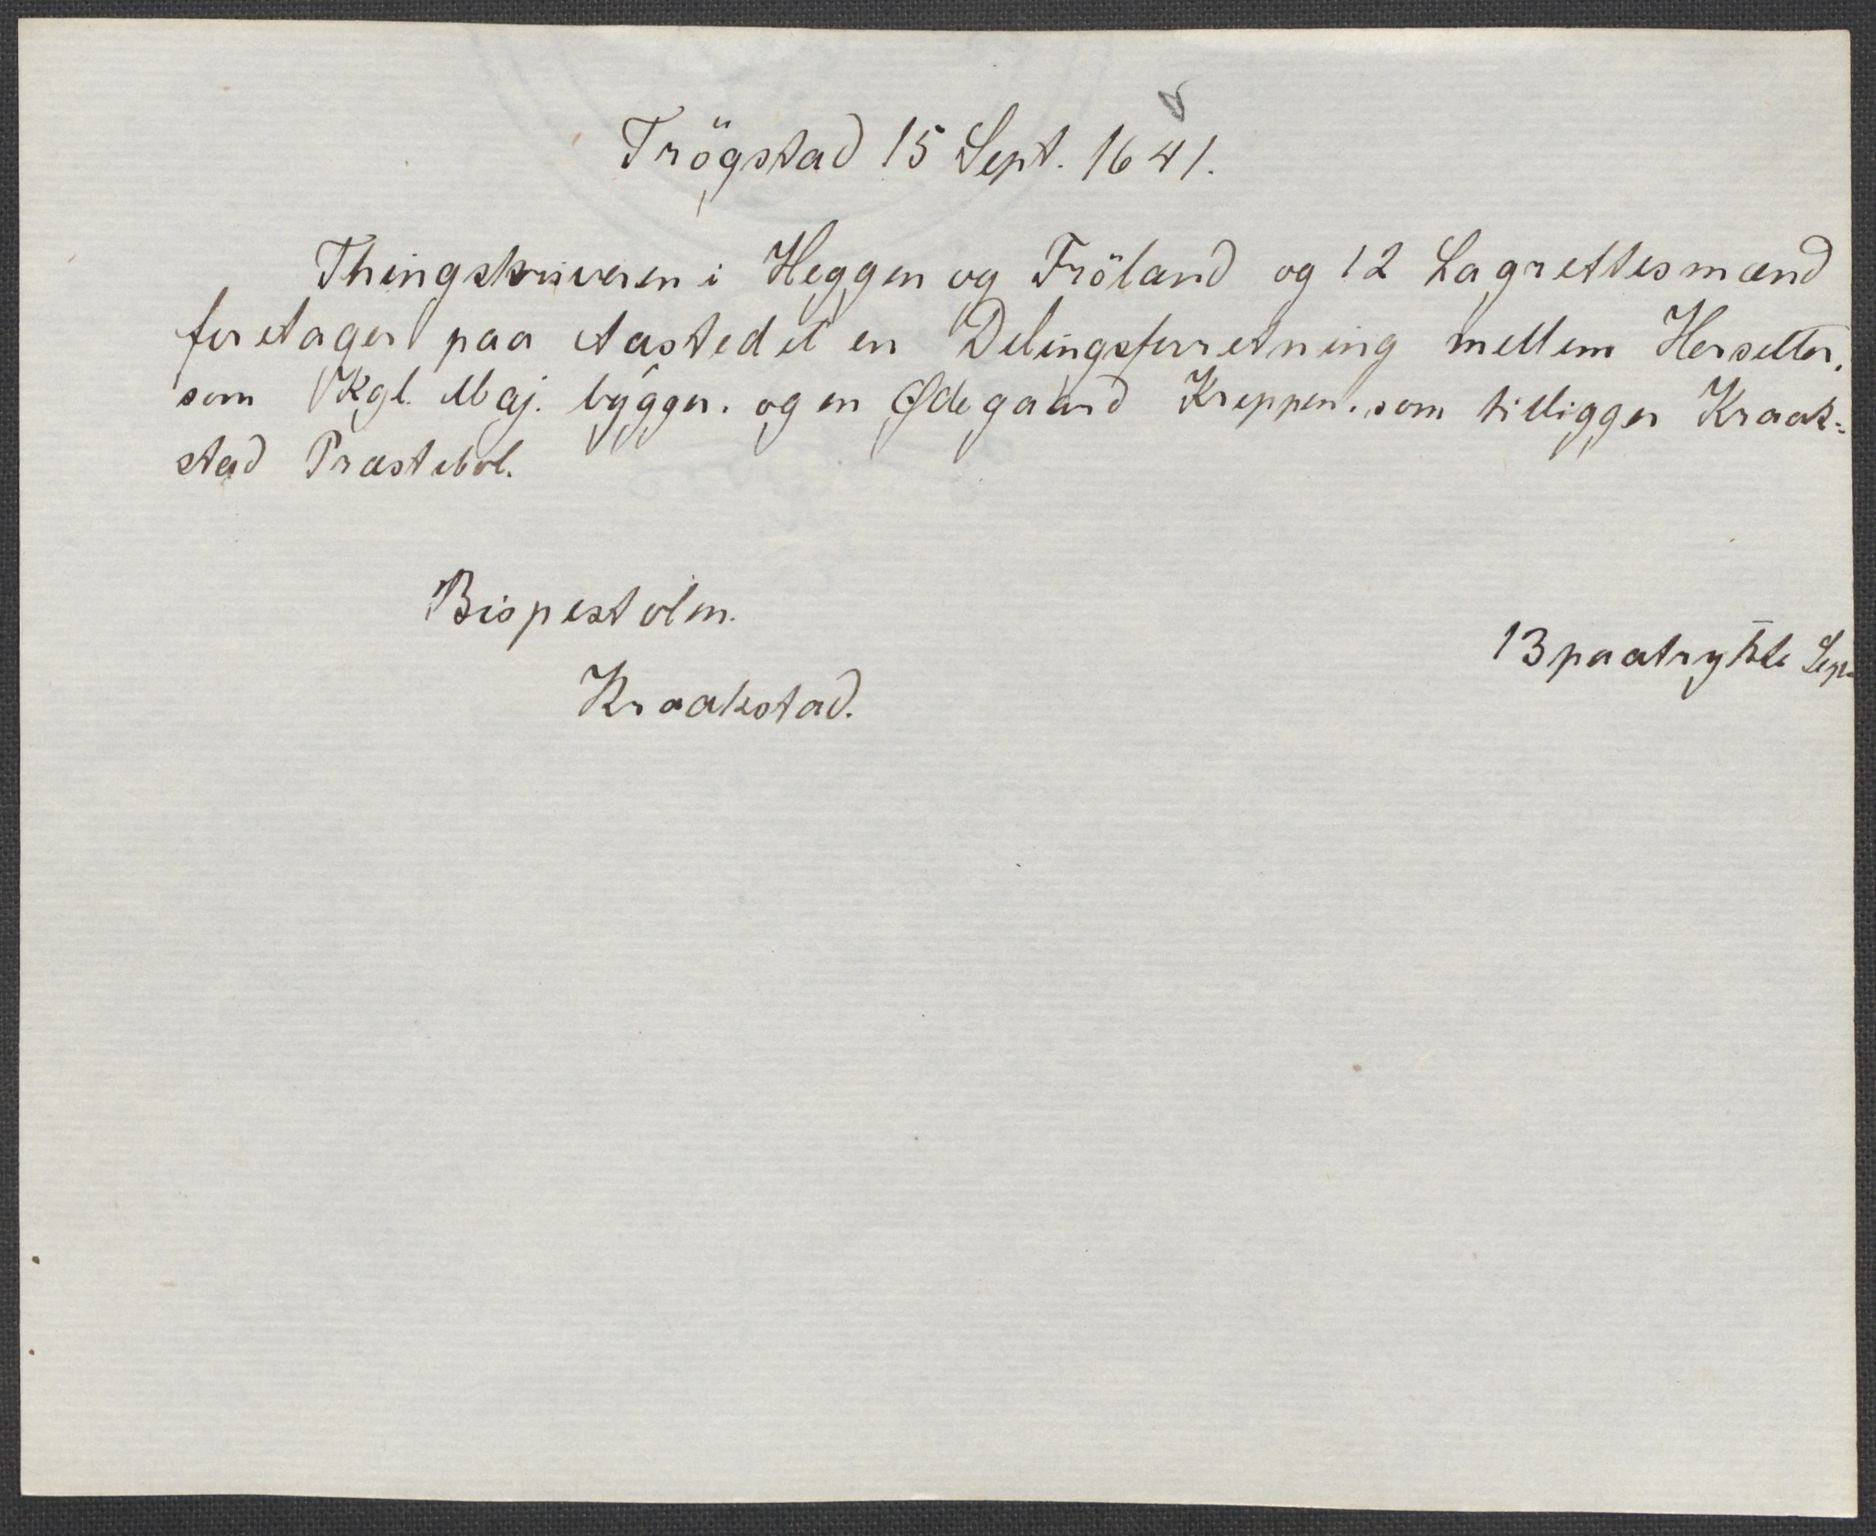 Trögstad 15 Sept. 1641.
Thingskriveren i Heggen og Fröland og 12 Lagrettesmænd
foretager paa Aastedet en Delingsforretning mellem Herseter,
som Kgl. Maj. bygger, og en Ødegaard Kreppen, som tilligger Kraak-
stad Præstebol.
Bispestolen.
Kraakstad.
13 paatrykte